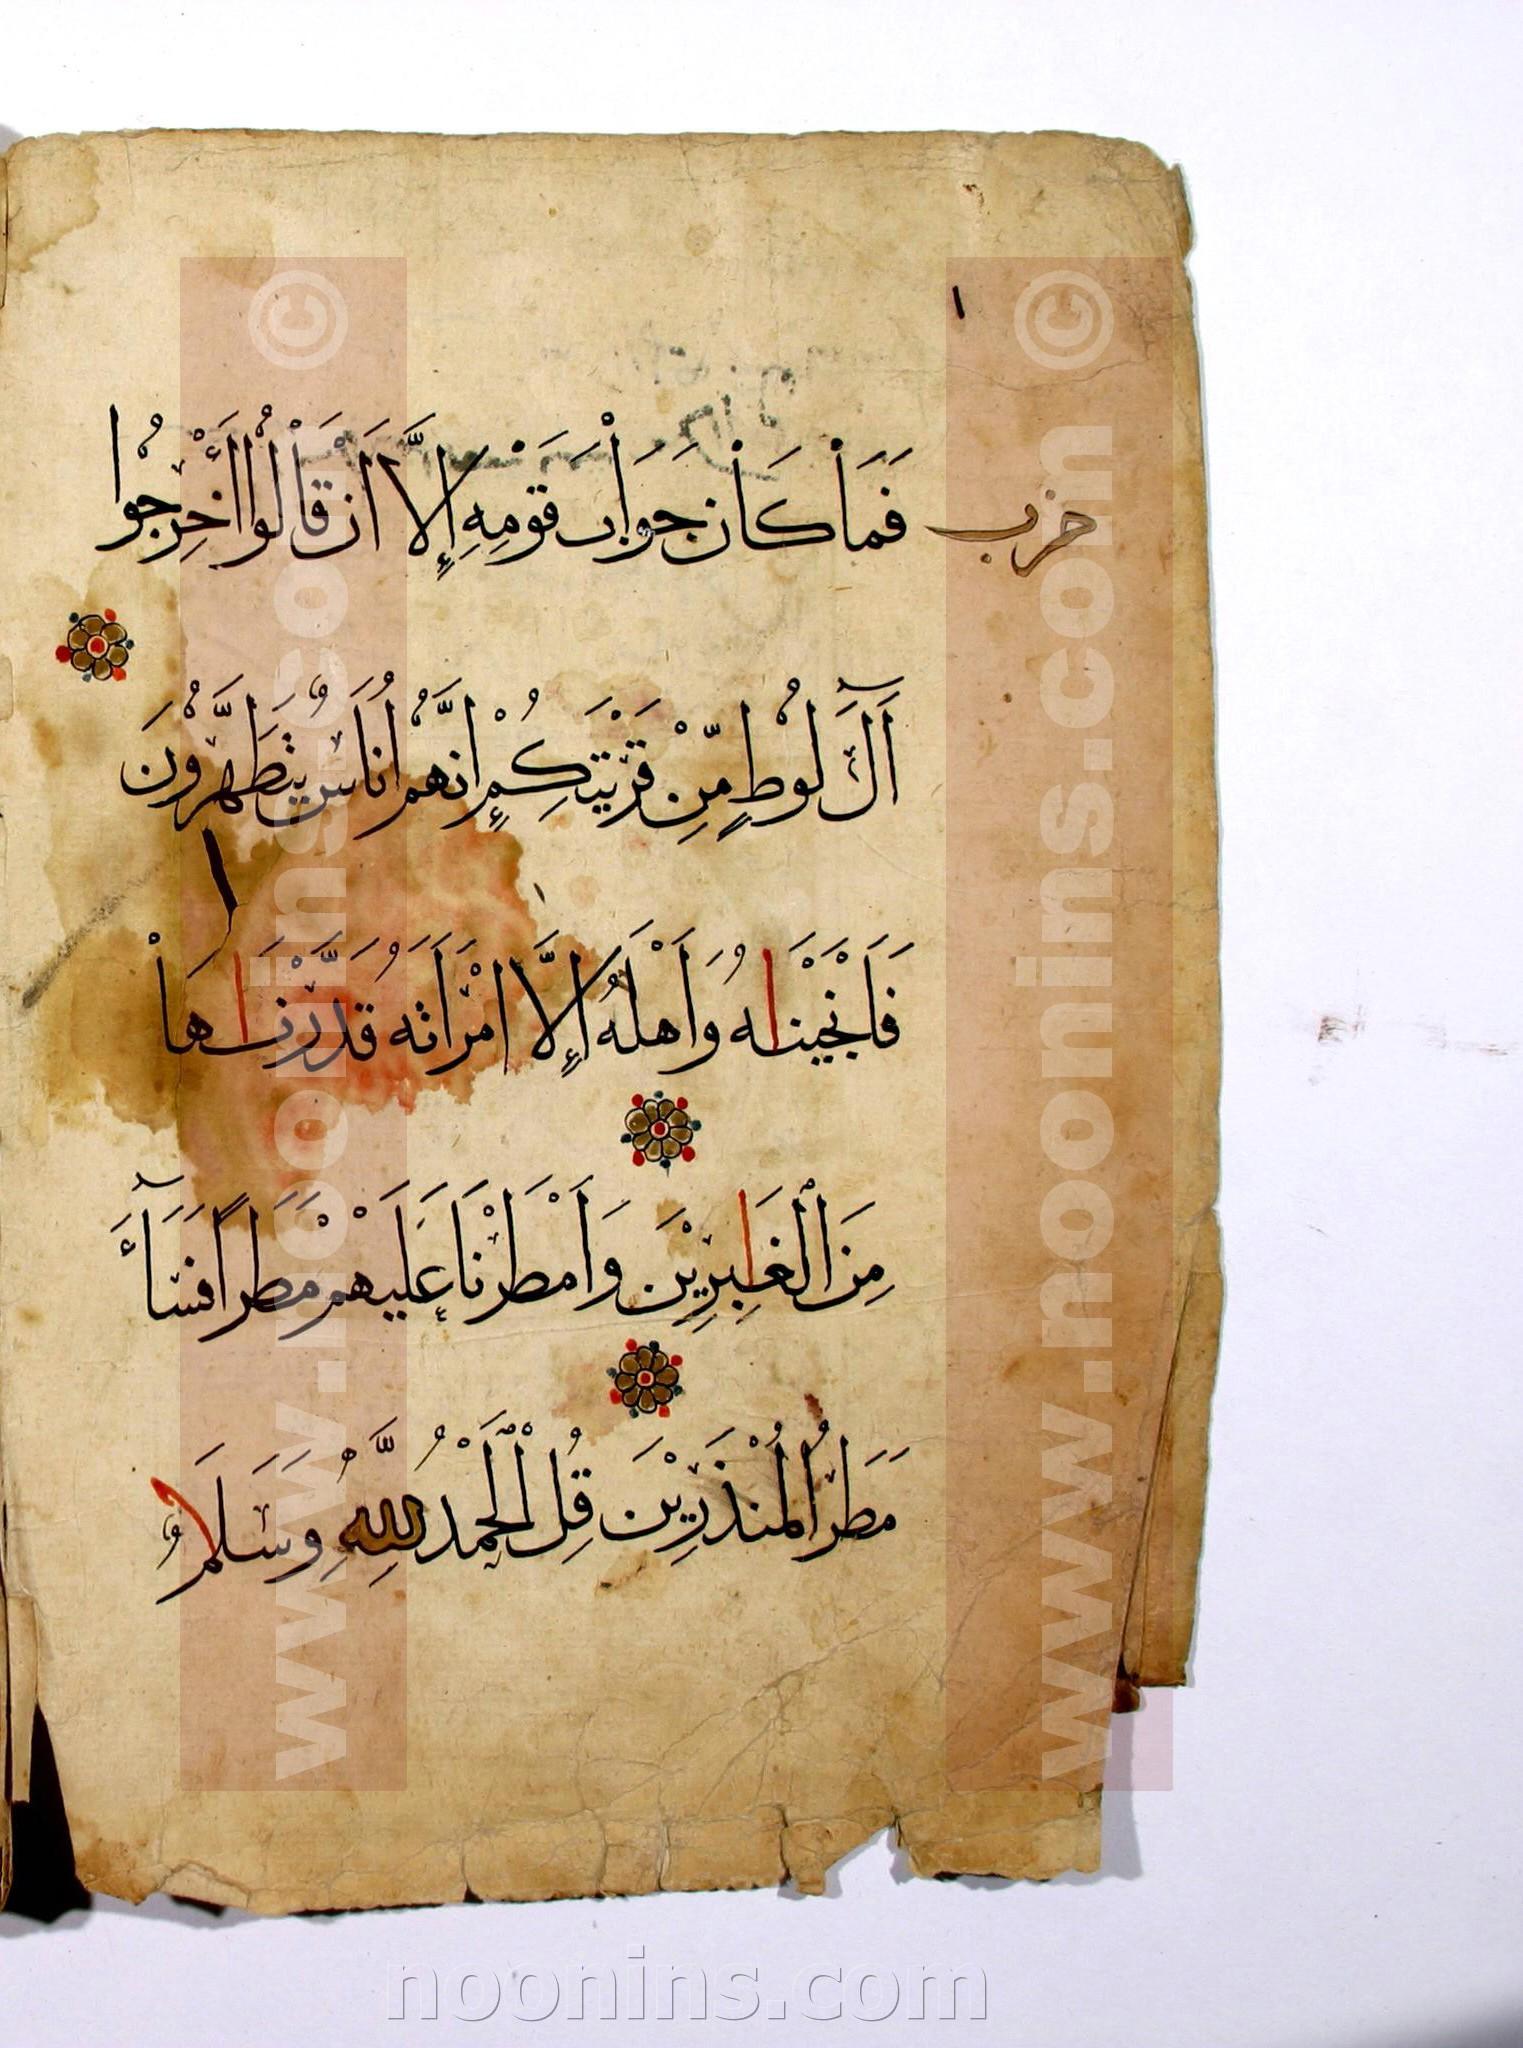 ١
حزب
فَمَاْ كَاْنَ جَوَاْبَ قَوْمِهِ إِلَّاْ أَنْ قَاْلُوْا أَخْرِجُوْا
آلَ لُوْطٍ مِّنْ قَرْيَتِكُمْ إِنَّهُمْ أُنَاْسٌ يَتَطَهَّرُوْنَ
١
فَأَنْجَيْنَاهُ وَأَهْلَهُ إِلَّا امْرَأَتَهُ قَدَّرْنَاهَاْ
مِنَ الْغَابِرِيْنَ وَأَمْطَرْنَا عَلَيْهِمْ مَطَرًا فَسَآءَ
مَطَرُ الْمُنْذَرِيْنَ قُلِ الْحَمْدُ لِلَّهِ وَسَلَامٌ
www.noonins.com ©
www.noonins.com ©
noonins.com